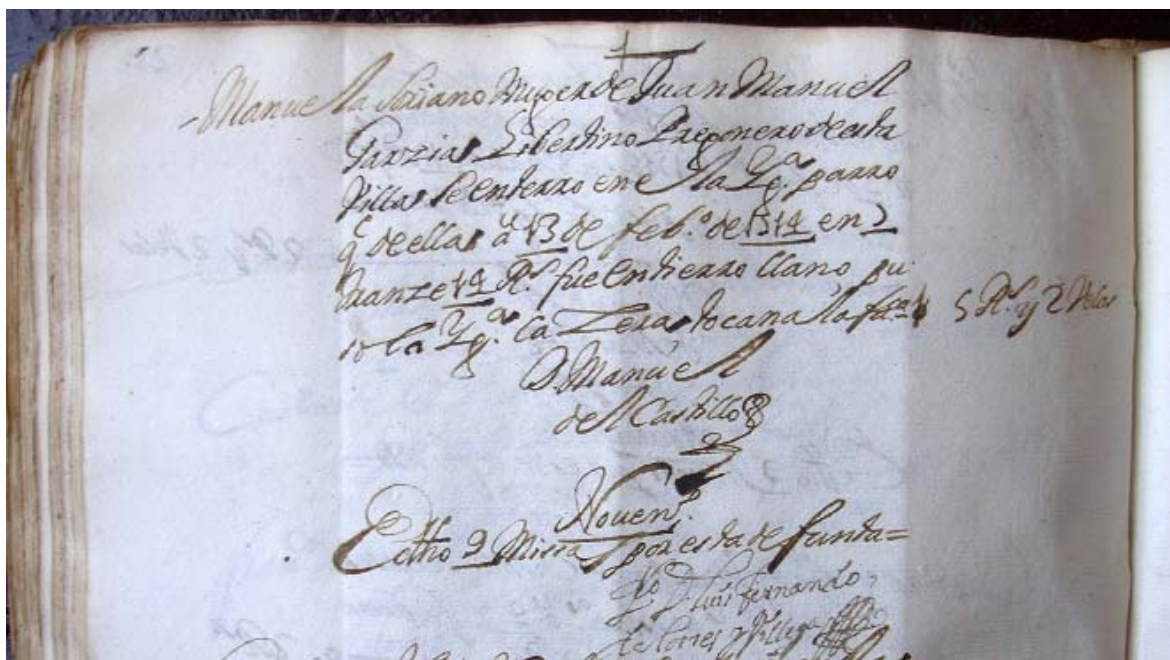 Manuela Soriano Muger de Juan Manuel
Garzia Libertino Pregonero de esta
Villa se enterro en la Yg.ª parro
q de ella a 13 de feb.º de en
quanze 14 R.s fue Entierro llano pu
so la Yg.ª la Zera tocan a la fca 5 R.s y 2 Velas
D. Manuel
del Castillo
Noven.º
Echo 9 Missas por esta defunta =
D. Luis Fernando
de Torres y Villega